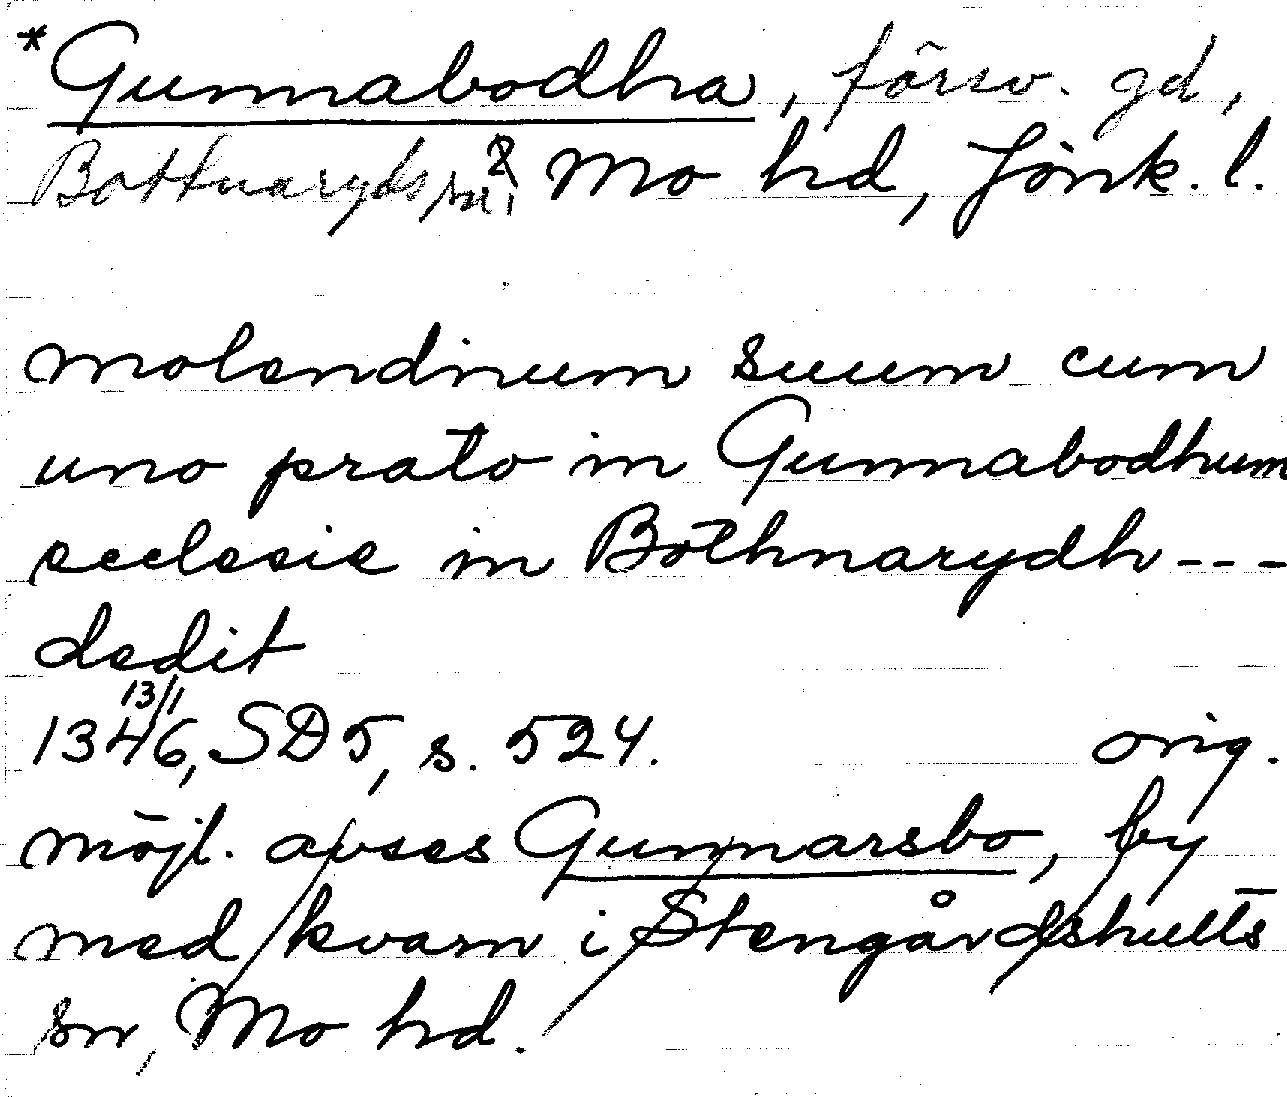 * Gunnabodha, försv. gd,
Bottnaryds sn, Mo hd, Jönk. l.
molendinum suum cum
uno prato in Gunnabodhum
ecclesie in Bothnarydh ---
dedit
13/1
1346, SD 5, s. 524. orig.
möjl. avses Gunnarsbo, by
med kvarn i Stengårdshults
sn, Mo hd.